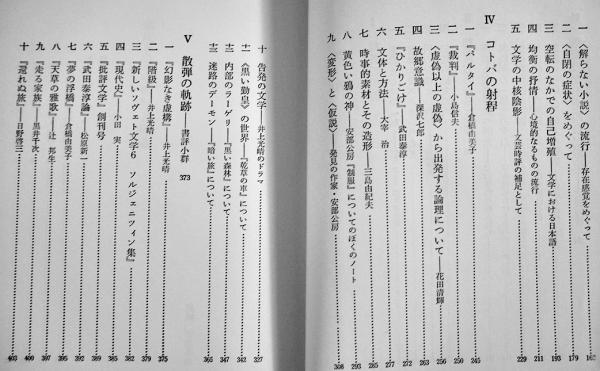 一 〈解らない小説〉の流行——存在感覚をめぐって
二 〈自閉の症状〉をめぐって 179
三 空転のなかでの自己増殖——文学における日本語 193
四 均衡の抒情——心境的なるものの流行 211
五 文学の中核陰影——文芸時評の補足として 229
Ⅳ コトバの射程
一 『パルタイ』——倉橋由美子 245
二 『裁判』——小島信夫 250
三 〈虚偽以上の虚偽〉から出発する論理について——花田清輝 256
四 故郷意識——深沢七郎 263
五 『ひかりごけ』——武田泰淳 272
六 文体と方法——太宰 治 277
七 時事的素材とその造形——三島由紀夫 285
八 黄色い鴉の神——安部公房『制服』についてのぼくのノート 293
九 〈変形〉と〈仮説〉——発見の作家・安部公房 308
十 告発の文学——井上光晴のドラマ 327
十一 〈黒い勤皇〉の世界——『乾草の車』について 342
十二 内部のラーゲリ——『黒い森林』について 347
十三 迷路のデーモン——『暗い旅』について 365
Ⅴ 散弾の軌跡——書評小群 373
一 『幻影なき虚構』——井上光晴 375
二 『階級』——井上光晴 379
三 『新しいソヴェト文学6 ソルジェニツィン集』 382
四 『現代史』——小田 実 385
五 『批評文学』創刊号 389
六 『武田泰淳論』——松原新一 392
七 『夢の浮橋』——倉橋由美子 395
八 『天草の雅歌』——辻 邦生 397
九 『走る家族』——黒井千次 400
十 『還れぬ旅』——日野啓三 403